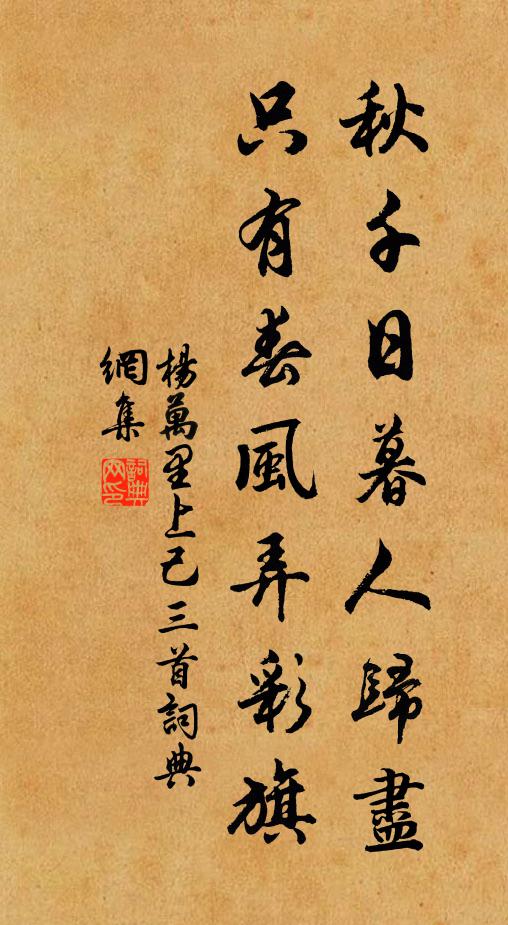 秋千日暮人歸盡
只有春風弄彩旗
楊萬里上己三首詞典
網集
詞典
网印